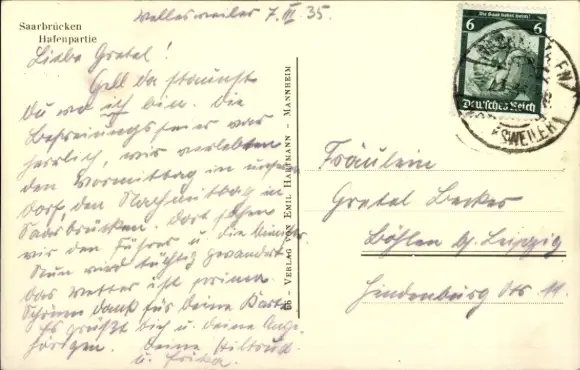 Wellesweiler 7. III. 35.
Saarbrücken
Hafenpartie
Liebe Gretel!
Gell da staunste
Du wo ich bin. Die
Befreiungsfeier war
herrlich, wir verlebten
den Vormittag in
dorf den Nachmittag in
Saarbrücken. Dort sahen
wir den Führer u. die Minister
Nun wird tüchtig gewandert
Das Wetter ist prima.
Schönen dank für deine Karte
Es grüßt dich u. deine Ange-
hörigen. Deine Hiltrud
u. Erika.
Eb - VERLAG VON EMIL HARTMANN - MANNHEIM
Die Saar kehrt heim!
6 6
Deutsches Reich
ESWEILER
Fräulein
Gretel Becker
Böhlen b/ Leipzig
Hindenburg Str. 11.